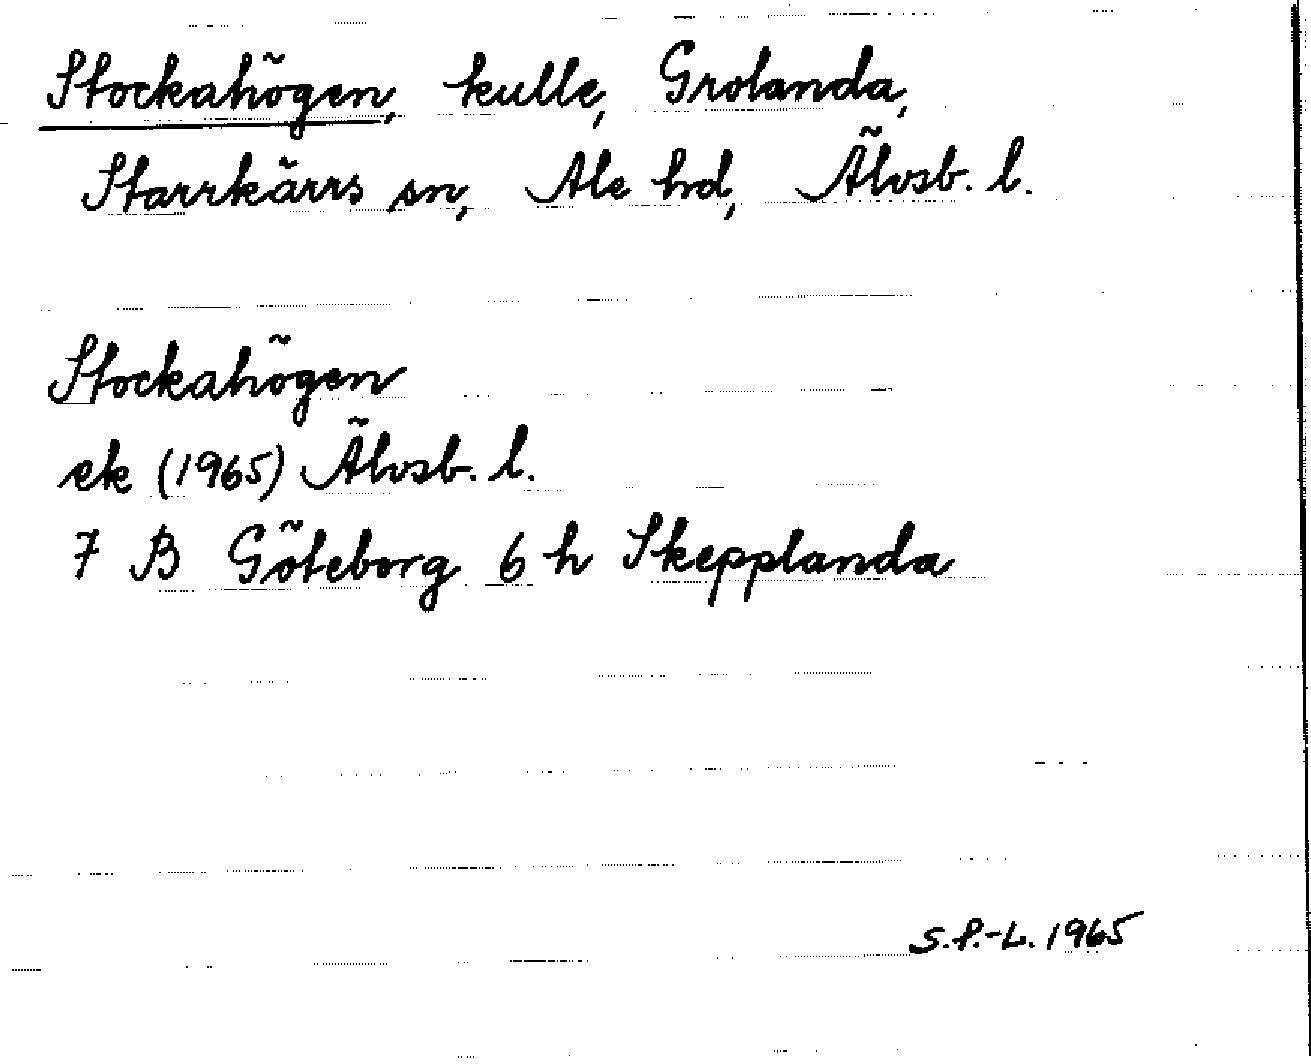 Stockahögen, kulle, Grolanda,
Starrkärrs sn, Ale hd, Älvsb. l.
Stockahögen
ek (1965) Älvsb. l.
7 B Göteborg 6 h Skepplanda
S.P.-L. 1965